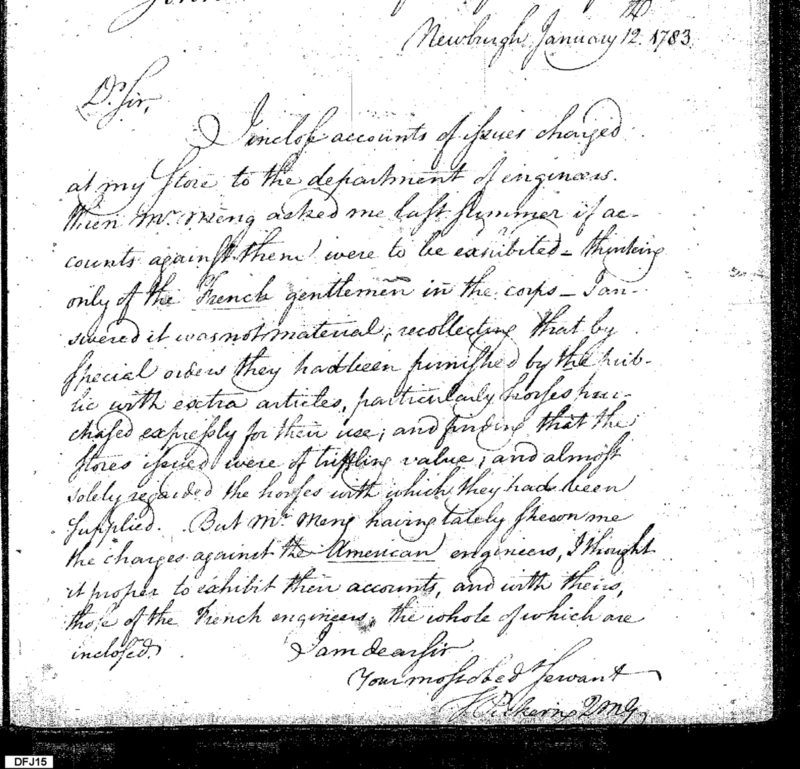 Newburgh January 12th. 1783.
Dr. Sir,
I inclose accounts of issues charged
at my store to the department of engineers.
When Mr. Meng asked me last summer if ac-
counts against them were to be exhibited - thinking
only of the French gentlemen in the corps - I an-
swered it was not material, recollecting that by
special orders they had been furnished by the pub-
lic with extra articles, particularly horses pur-
chased expressly for their use; and finding that the
stores issued were of trifling value; and almost
solely regarded the horses with which they had been
supplied. But Mr. Meng having lately shewn me
the charges against the American engineers, I thought
it proper to exhibit their accounts, and with theirs,
those of the French engineers, the whole of which are
inclosed. I am dear sir
Your most obed servant
T Pickering QMG
DFJ15